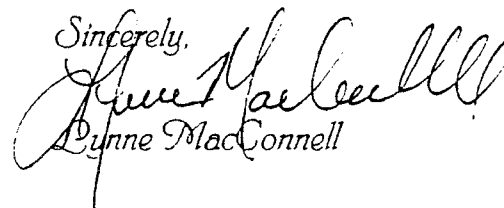 Sincerely,
Lynne MacConnell
Lynne MacConnell